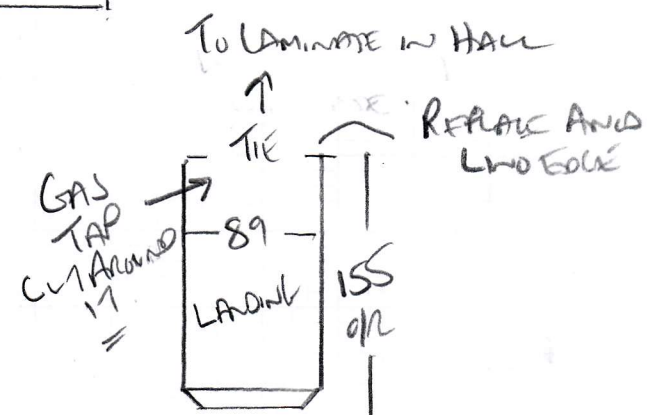 TO LAMINATE IN HALL
TIE
REPLACE AND
LINO EDGE
GAS
TAP
CUT AROUND
IT
89
LANDING
155
O/R